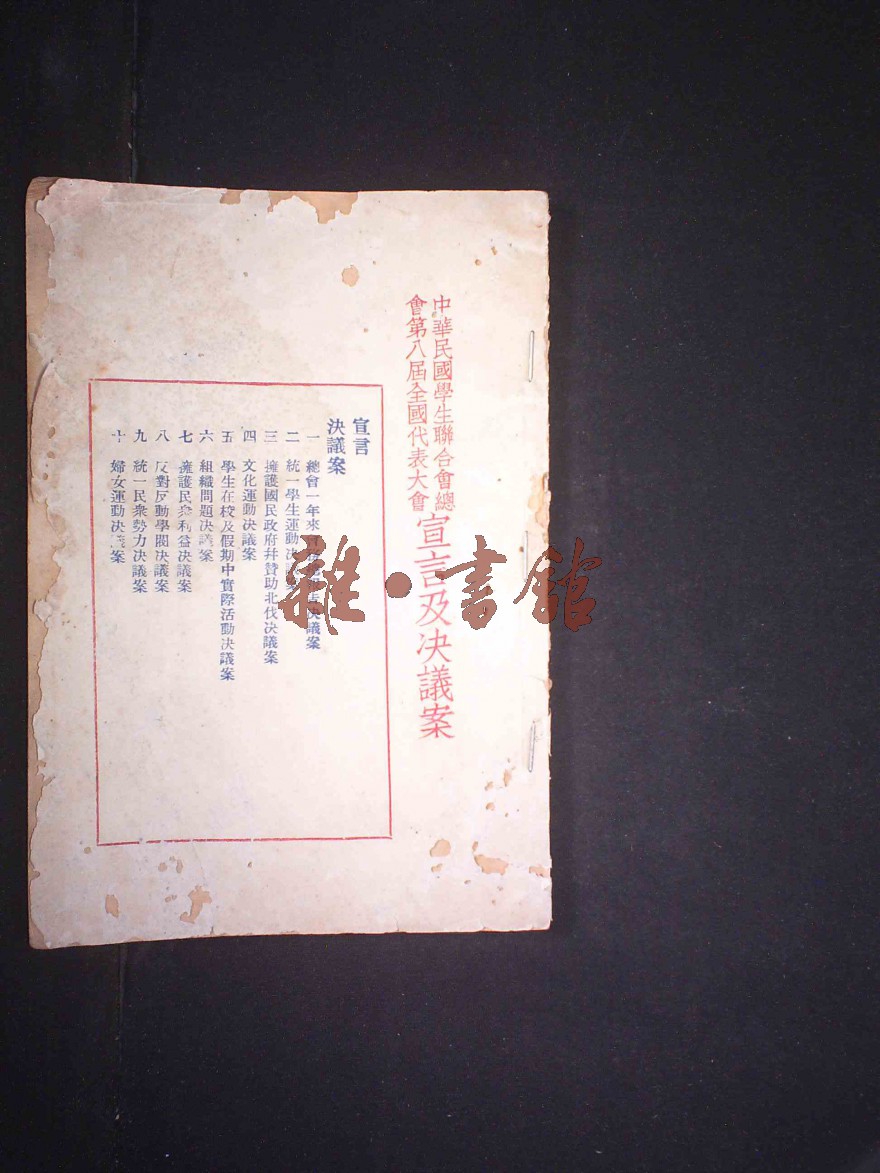 中華民國學生聯合會總
會第八屆全國代表大會
宣言及決議案
宣言
決議案
一 總會一年來決議案
二 統一學生運動決議案
三 擁護國民政府幷贊助北伐決議案
四 文化運動決議案
五 學生在校及假期中實際活動決議案
六 組織問題決議案
七 擁護民衆利益決議案
八 反對反動學閥決議案
九 統一民衆勢力決議案
十 婦女運動決議案
雜·書館